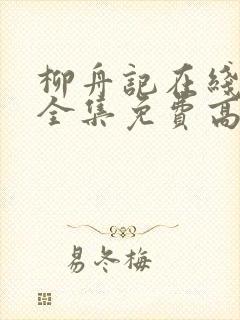 柳舟記在綫
全集免費高
易冬梅